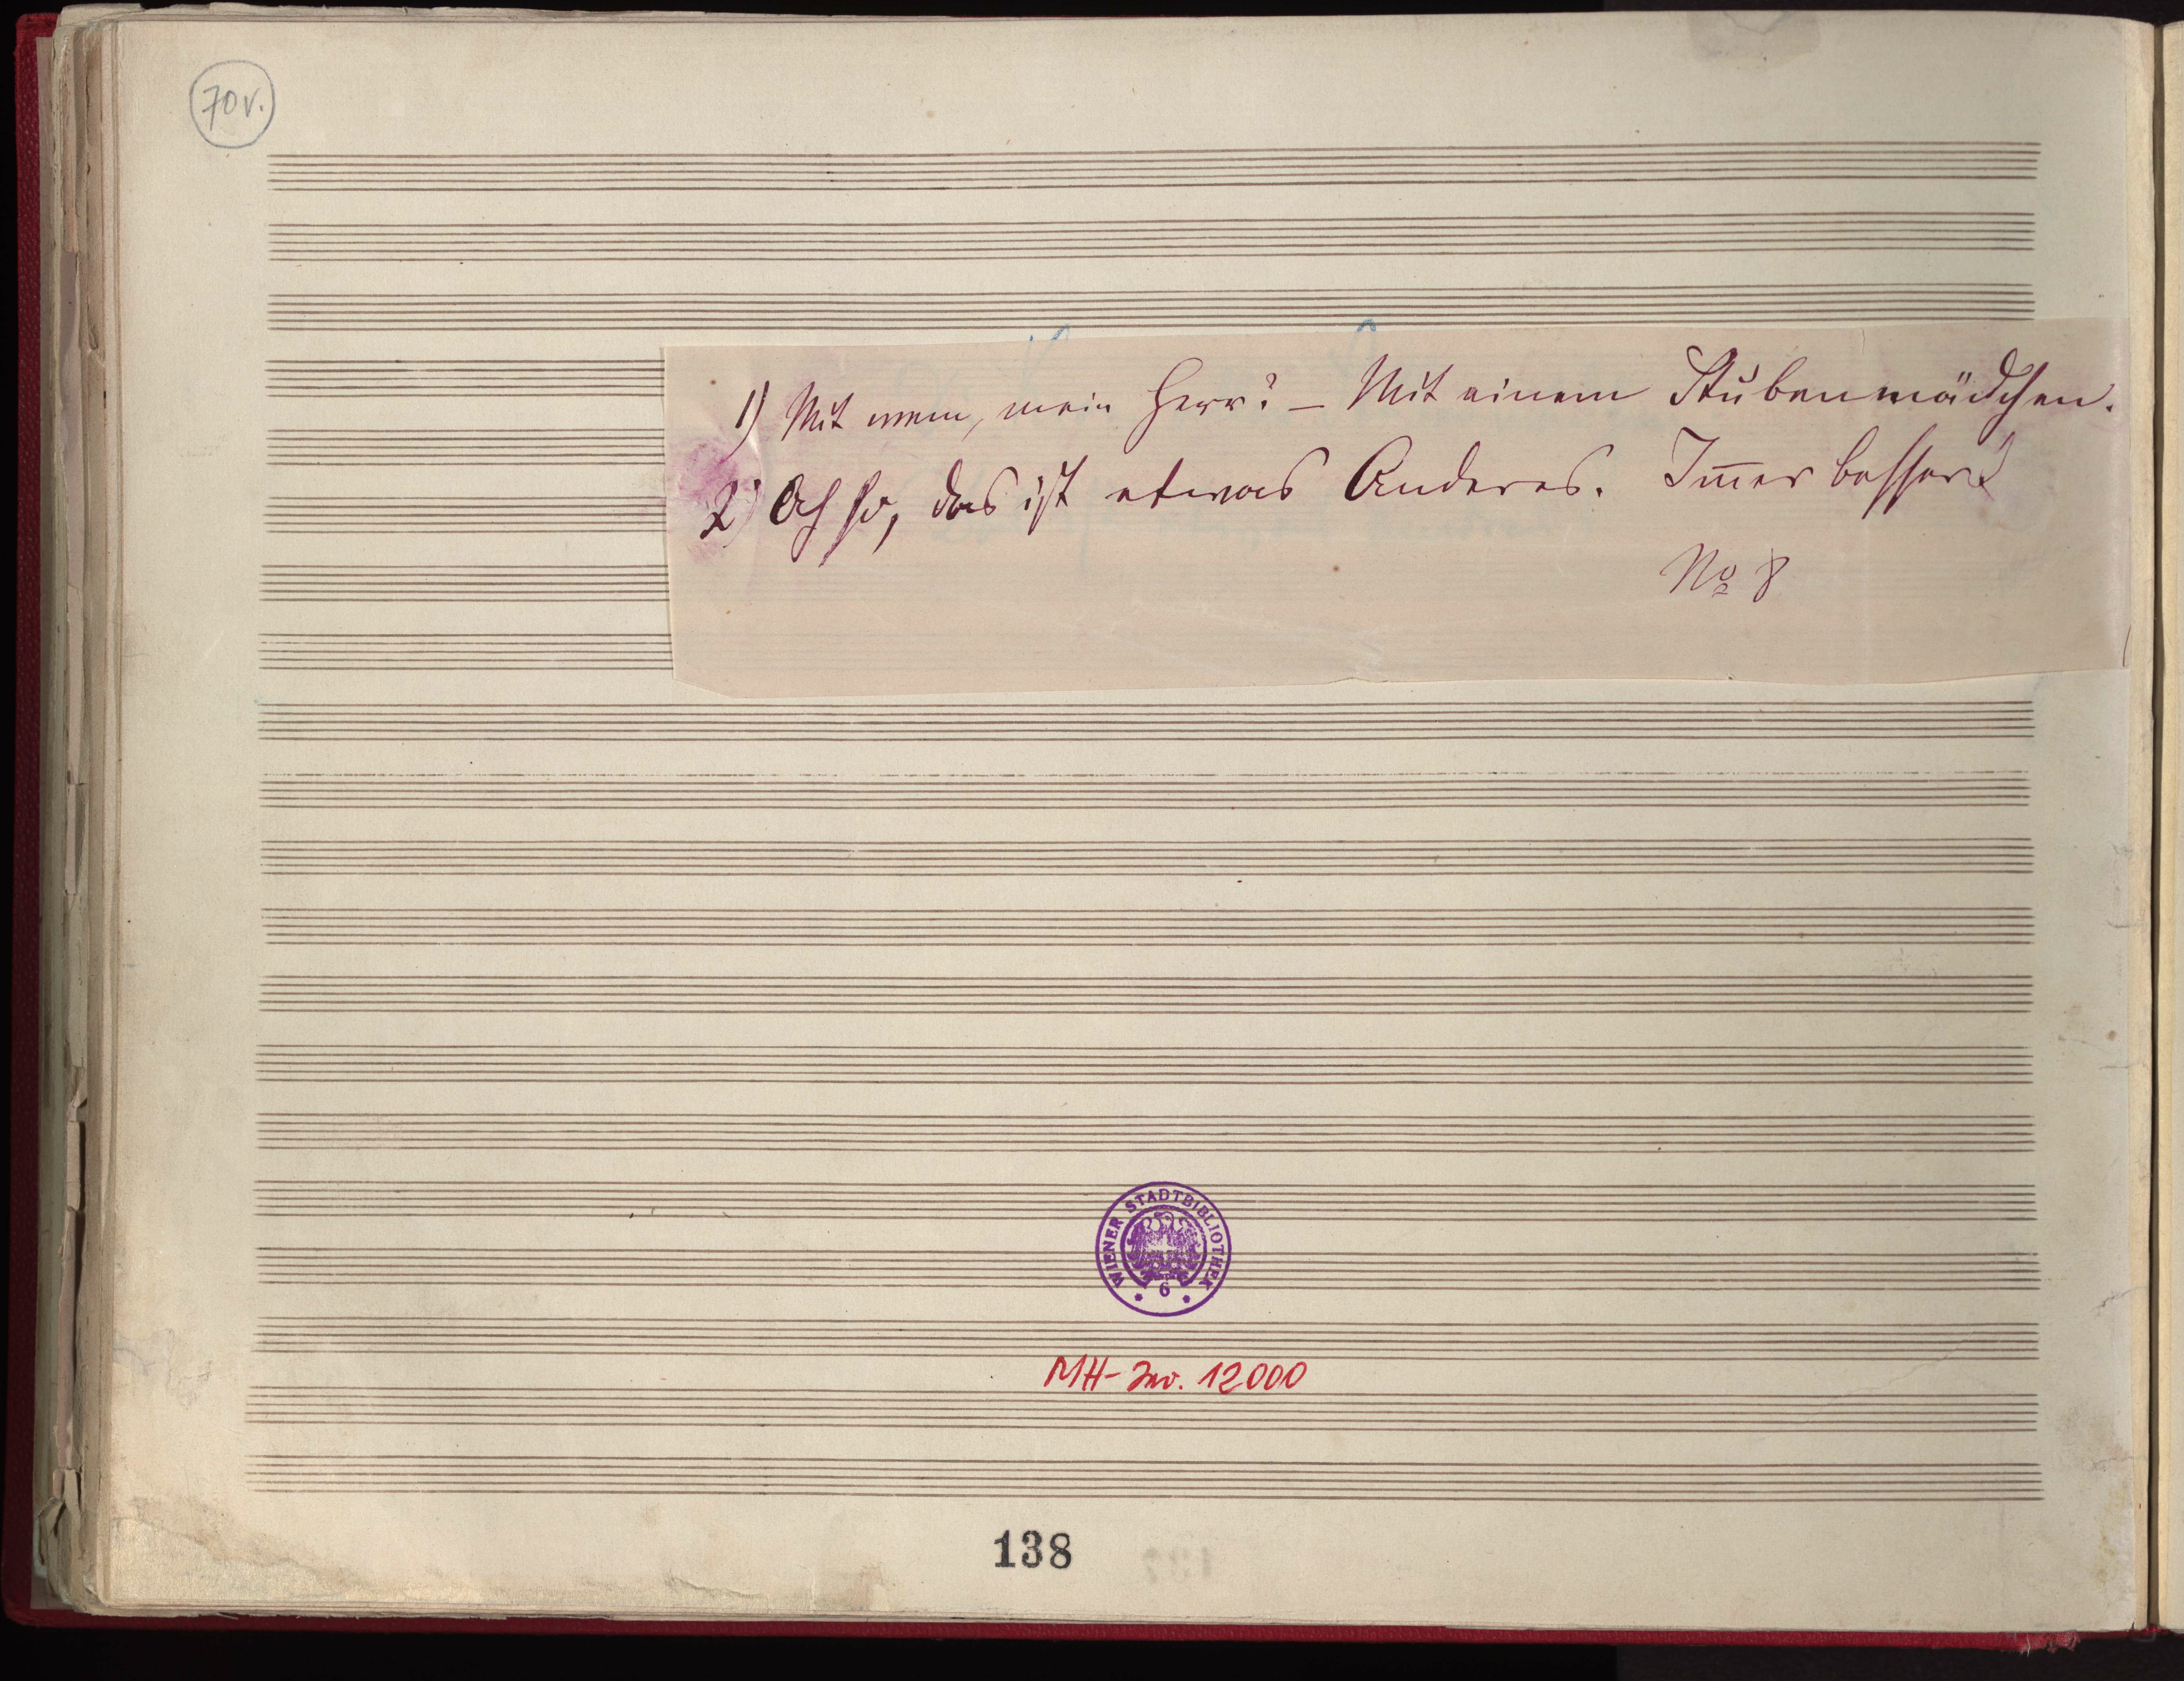 70v.
1) Mit wem, mein Herr? – Mit einem Stubenmädchen.
2) Ach so, das ist etwas Anderes. Im̅er besser!
No 8
WIENER STADTBIBLIOTHEK
6
MH-Inv. 12000
138